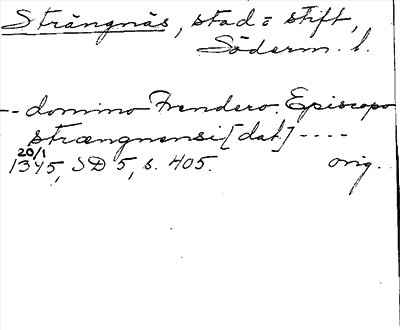 Strängnäs, stad o stift,
Söderm. l.
-- domino Frendero. Episcopo
strœngnensi [dat] ----
20/1
1345, SD 5, s. 405. orig.